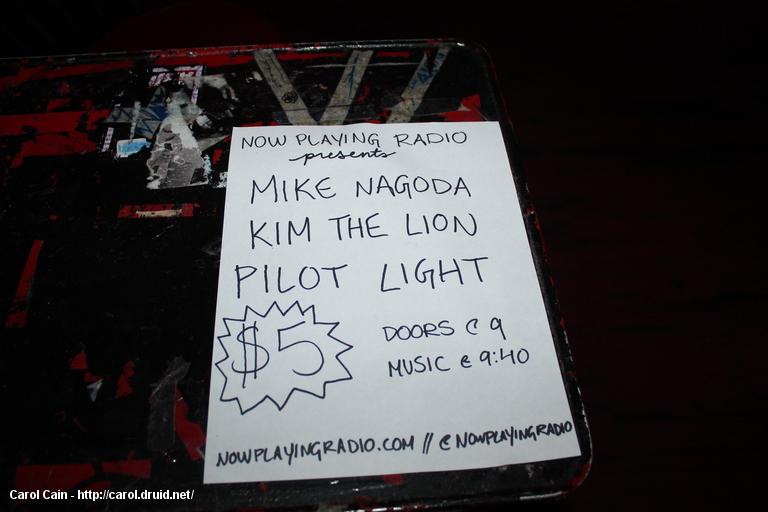 NOW PLAYING RADIO
presents
MIKE NAGODA
KIM THE LION
PILOT LIGHT
$5
DOORS @ 9
MUSIC @ 9:40
NOWPLAYINGRADIO.COM // @NOWPLAYINGRADIO
Carol Cain - http://carol.druid.net/